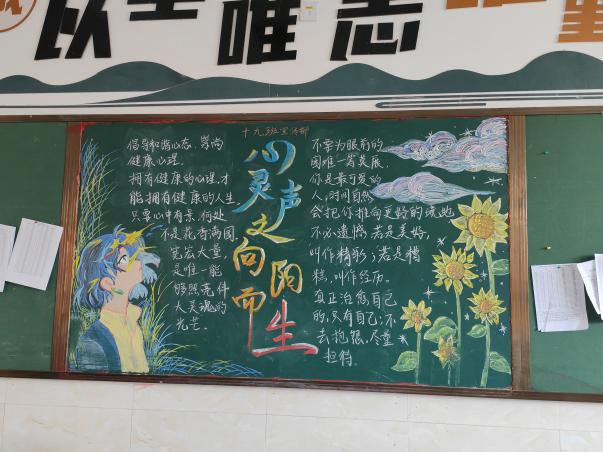 以
唯志
十九班宣传部
心灵之声
向阳而生
倡导和谐心态,崇尚
健康心理.
拥有健康的心理,才
能拥有健康的人生
只要心中有景,何处
不是花香满园.
宽宏大量
是唯一能
够照亮伟
大灵魂的
光芒.
不要为眼前的
困难一筹莫展.
你是最可爱的
人,时间自然
会把你推向更好的境地
不必遗憾,若是美好,
叫作精彩;若是糟
糕,叫作经历.
真正治愈自己
的,只有自己;不
去抱怨,尽量
担待.